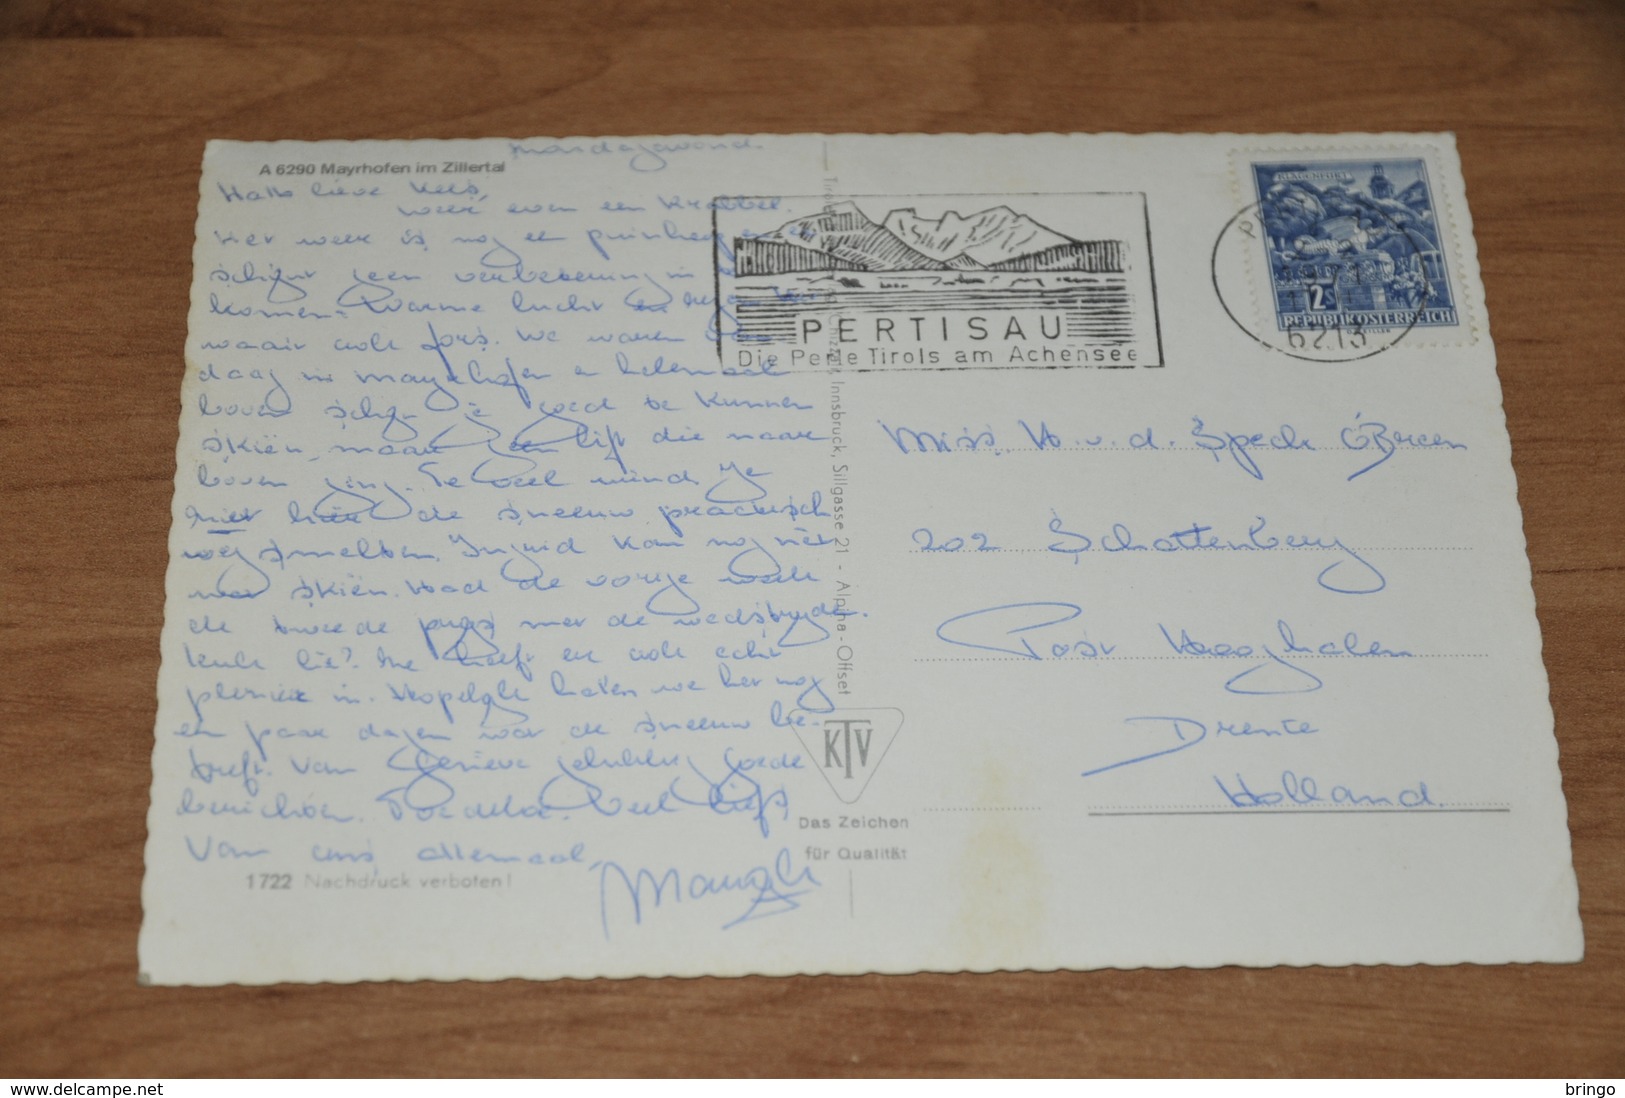 A 6290 Mayrhofen im Zillertal
Maandagavond.
Hallo lieve Kees,
weer even een krabbel.
Het weer is nog een puinhoop en er
schijnt geen verbetering in te
komen. Warme lucht en regen. Het
waait ook fors. We waren
daag in Mayrhofen en helemaal
boven schijn je goed te kunnen
skiën, maar geen lift die naar
boven ging. Te veel wind. Je
niet hier de sneeuw practisch
weg smelten. Ingrid kan nog niet
mee skiën. Had de vorige week
de tweede prijs met de wedstrijden.
Leuk hé? Ze heeft er ook echt
plezier in. Hopelijk halen we het nog
een paar dagen wat de sneeuw be-
treft. Van gelukkig goede
berichten. Veel liefs
van ons allemaal,
1722 Nachdruck verboten!
Innsbruck, Sillgasse 21 - Alpina-Offset
KTV
Das Zeichen
für Qualität
PERTISAU
Die Perle Tirols am Achensee
KLAGENFURT
2S
REPUBLIK ÖSTERREICH
6213
Miss. H. v. d. Speck Obreen
202 Schattenberg
Post Hooghalen
Drente
Holland.
www.delcampe.net
bringo